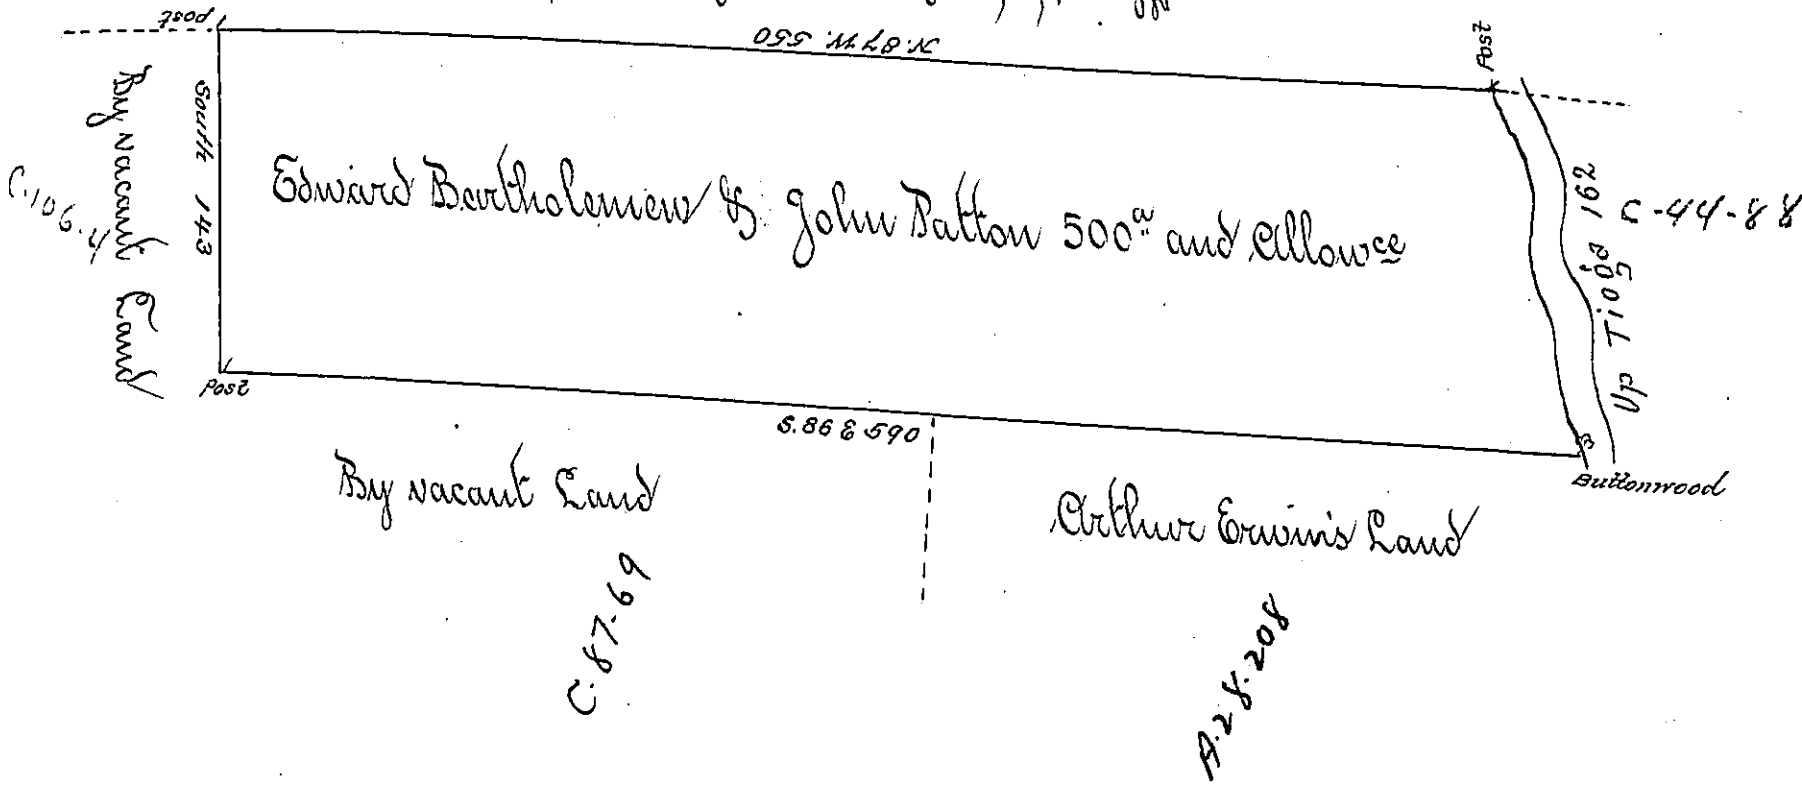 post
N. 87 W. 550
Post
By vacant Land
South 143
C.106.4
Edward Bartholemew & John Patton 500a and Allowce
Up Tioga 162
C-44-88
Post
S. 86 E 590
B
Buttonwood
By vacant Land
Arthur Erwin's Land
C. 87-69
A.28.208